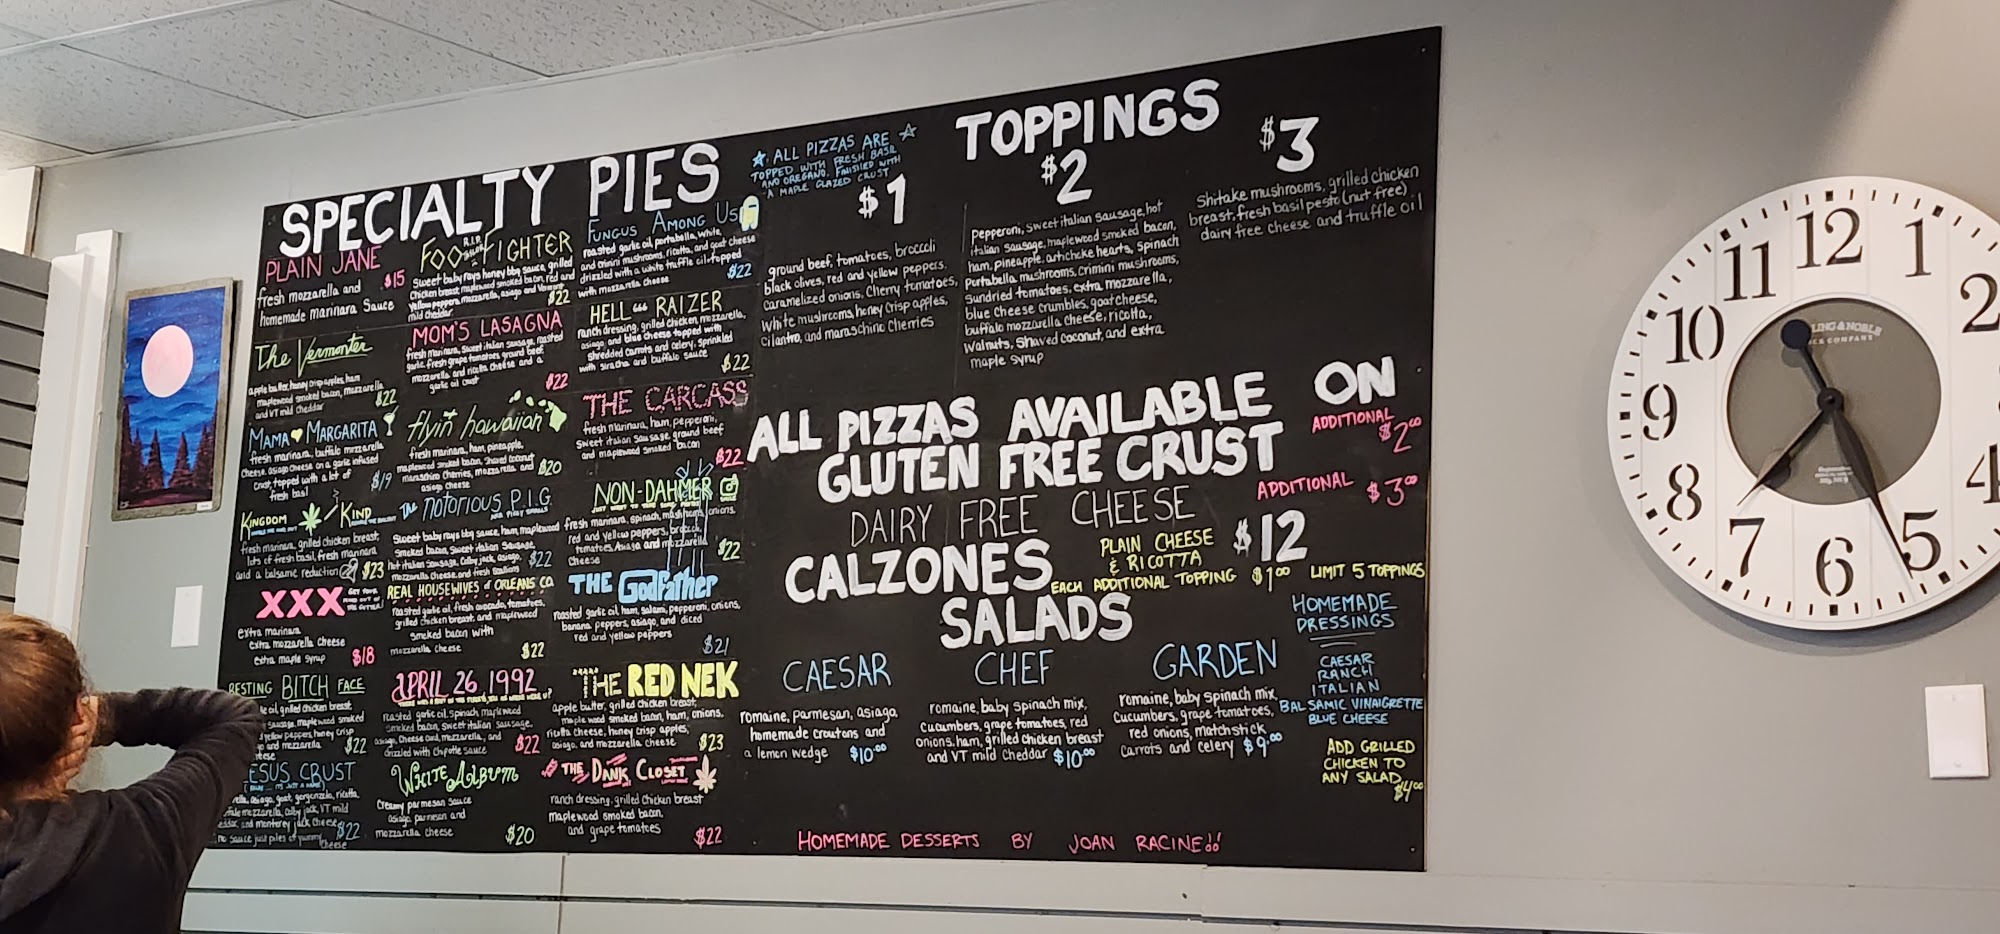 SPECIALTY PIES
PLAIN JANE
fresh mozzarella and $15
homemade marinara Sauce
The Vermonter
apple butter, honey crisp apples, ham
maplewood smoked bacon, mozzarella
and VT mild cheddar $22
MAMA MARGARITA
fresh marinara, buffalo mozzarella
Cheese, asiago cheese on a garlic infused
Crust, topped with a lot of
fresh basil $19
KINGDOM KIND
fresh marinara, grilled chicken breast,
lots of fresh basil, fresh marinara
and a balsamic reduction $23
XXX
extra marinara
extra mozzarella cheese
extra maple syrup $18
RESTING BITCH FACE
oil, grilled chicken breast,
sausage, maplewood smoked
yellow peppers, honey crisp
and mozzarella $22
ESUS CRUST
asiago, goat, gorgonzola, ricotta,
mozzarella, Colby jack, VT mild
and monterey jack Cheese $22
no sauce just piles of yummy
Cheese
FOO FIGHTER
R.I.P.
Sweet baby rays honey bbq sauce, grilled
Chicken breast, maplewood smoked bacon, red and
Yellow peppers, mozzarella, asiago and Vermont
mild cheddar $22
MOM'S LASAGNA
fresh marinara, Sweet italian sausage, roasted
garlic, fresh grape tomatoes, ground beef,
mozzarella and ricotta cheese and a
garlic oil crust $22
flyin hawaiian
fresh marinara, ham, pineapple,
maplewood smoked bacon, shaved coconut
maraschino Cherries, mozzarella and $20
asiago cheese
THE notorious P.I.G
Sweet baby rays bbq sauce, ham, maplewood
Smoked bacon, Sweet italian Sausage,
hot italian Sausage, Colby jack, asiago, $22
mozzarella Cheese, and fresh Scallions
REAL HOUSEWIVES of ORLEANS CO.
roasted garlic oil, fresh avocado, tomatoes,
grilled chicken breast and maplewood
smoked bacon with
mozzarella cheese $22
APRIL 26, 1992
roasted garlic oil, Spinach, maplewood
Smoked bacon, Sweet italian Sausage,
asiago, Cheese curd, mozzarella, and
drizzled with Chipotle sauce $22
WHITE ALBUM
Creamy parmesan sauce
asiago, parmesan and
mozzarella cheese $20
FUNGUS AMONG US
roasted garlic oil, portabella, white,
and crimini mushrooms, ricotta, and goat cheese
drizzled with a white truffle oil-topped
with mozzarella cheese $22
HELL 666 RAIZER
ranch dressing, grilled chicken, mozzarella,
asiago, and blue cheese topped with
shredded carrots and celery, sprinkled
with siracha and buffalo sauce $22
THE CARCASS
fresh marinara, ham, pepperoni,
Sweet italian Sausage, ground beef
and maplewood smoked bacon $22
NON-DAHMER
fresh marinara, spinach, mushrooms, onions,
red and yellow peppers, broccoli,
tomatoes, Asiago and mozzarella
Cheese $22
THE Godfather
roasted garlic oil, ham, salami, pepperoni, onions,
banana peppers, asiago, and diced
red and yellow peppers $21
THE RED NEK
apple butter, grilled chicken breast,
maple wood smoked bacon, ham, onions,
ricotta cheese, honey crisp apples,
asiago, and mozzarella cheese $23
THE DANK CLOSET
ranch dressing, grilled chicken breast
maplewood smoked bacon,
and grape tomatoes $22
ALL PIZZAS ARE
TOPPED WITH FRESH BASIL
AND OREGANO. FINISHED WITH
A MAPLE GLAZED CRUST
TOPPINGS
$1
ground beef, tomatoes, broccoli
black olives, red and yellow peppers,
Caramelized onions, Cherry tomatoes,
White mushrooms, honey crisp apples,
Cilantro, and maraschino cherries
$2
Pepperoni, sweet italian sausage, hot
italian Sausage, maplewood smoked bacon,
ham, pineapple, artichoke hearts, spinach
Portabella mushrooms, Crimini mushrooms,
sundried tomatoes, extra mozzarella,
blue Cheese crumbles, goat cheese,
buffalo mozzarella Cheese, ricotta,
Walnuts, Shaved coconut, and extra
maple syrup
$3
Shitake mushrooms, grilled chicken
breast, fresh basil pesto (nut free),
dairy free cheese and truffle oil
ALL PIZZAS AVAILABLE ON
GLUTEN FREE CRUST ADDITIONAL $2.00
DAIRY FREE CHEESE ADDITIONAL $3.00
CALZONES PLAIN CHEESE & RICOTTA $12
EACH ADDITIONAL TOPPING $1.00 LIMIT 5 TOPPINGS
SALADS
CAESAR
romaine, parmesan, asiago,
homemade croutons and
a lemon wedge $10.00
CHEF
romaine, baby spinach mix,
Cucumbers, grape tomatoes, red
onions, ham, grilled chicken breast
and VT mild Cheddar $10.00
GARDEN
romaine, baby spinach mix,
Cucumbers, grape tomatoes,
red onions, matchstick
Carrots and celery $9.00
HOMEMADE
DRESSINGS
CAESAR
RANCH
ITALIAN
BALSAMIC VINAIGRETTE
BLUE CHEESE
ADD GRILLED
CHICKEN TO
ANY SALAD
$4.00
HOMEMADE DESSERTS BY JOAN RACINE!!
12
1
2
4
5
6
7
8
9
10
11
LING & NOBLE
COMPANY